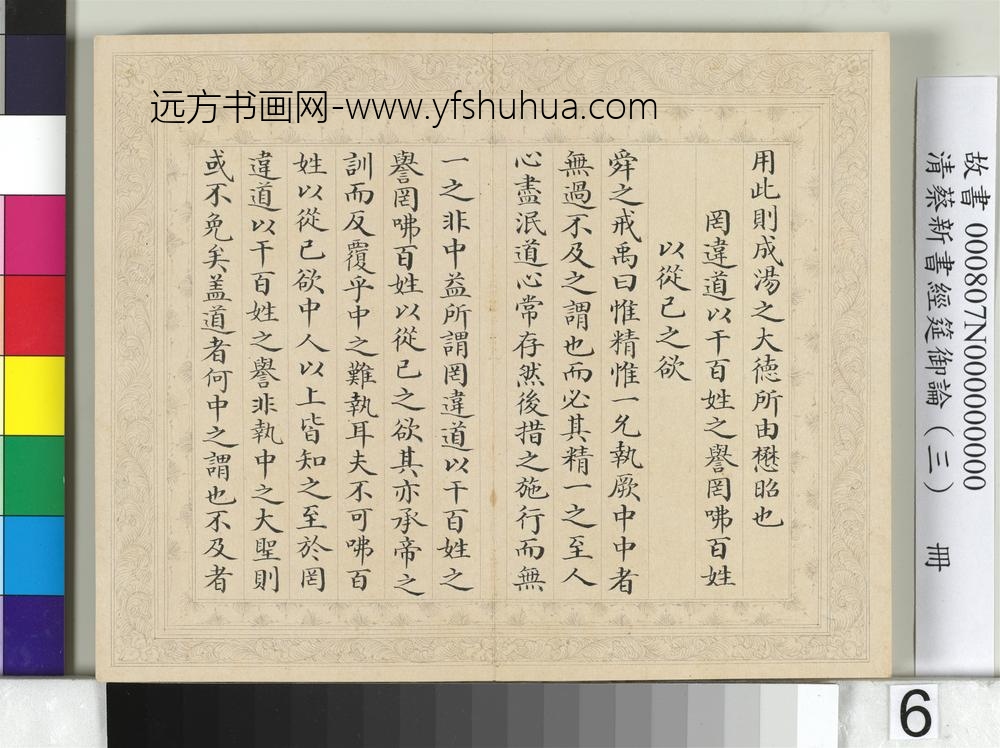 远方书画网-www.yfshuhua.com
用此則成湯之大德所由懋昭也
罔違道以干百姓之譽罔咈百姓
以從己之欲
舜之戒禹曰惟精惟一允執厥中中者
無過不及之謂也而必其精一之至人
心盡泯道心常存然後措之施行而無
一之非中益所謂罔違道以干百姓之
譽罔咈百姓以從己之欲其亦承帝之
訓而反覆乎中之難執耳夫不可咈百
姓以從己欲中人以上皆知之至於罔
違道以干百姓之譽非執中之大聖則
或不免矣盖道者何中之謂也不及者
故書 000807N000000000
清蔡新書經筵御論（三） 冊
6